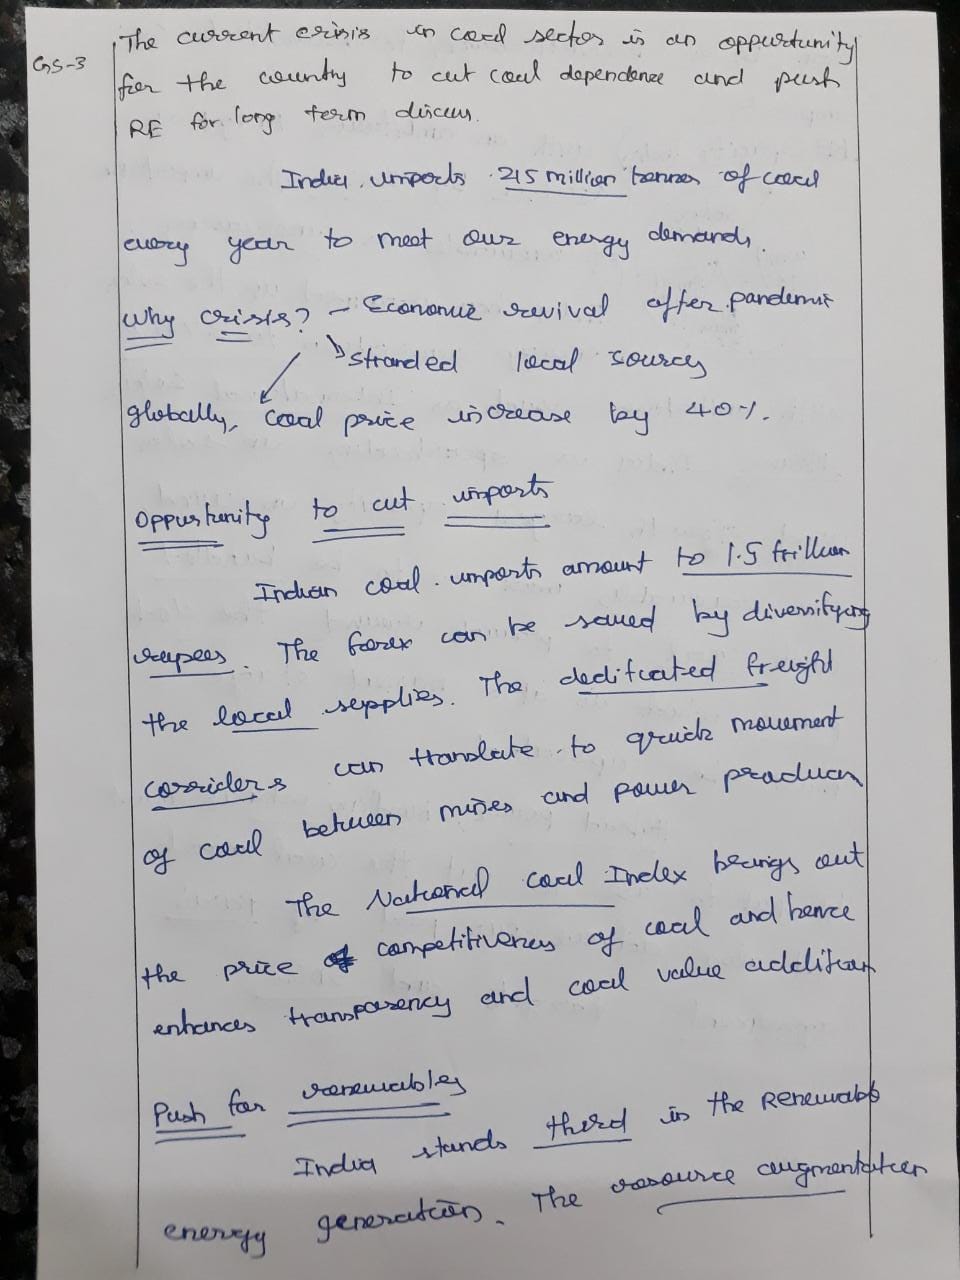 GS-3
The current crisis in coal sector is an oppurtunity
for the country to cut coal dependence and push
RE for long term discuss.
India imports 215 million tonnes of coal
every year to meet our energy demands.
Why crisis? - Economic revival after pandemic
stranded local sources
globally, coal price increase by 40%.
Oppurtunity to cut imports
Indian coal imports amount to 1.5 trillion
rupees. The forex can be saved by diversifying
the local supplies. The dedicated freight
corriders can translate to quick movement
of coal between mines and power producers
The National coal Index brings out
the price competitiveness of coal and hence
enhances transparency and coal value addition
Push for renewables
India stands third in the Renewable
energy generation. The resource augmentation